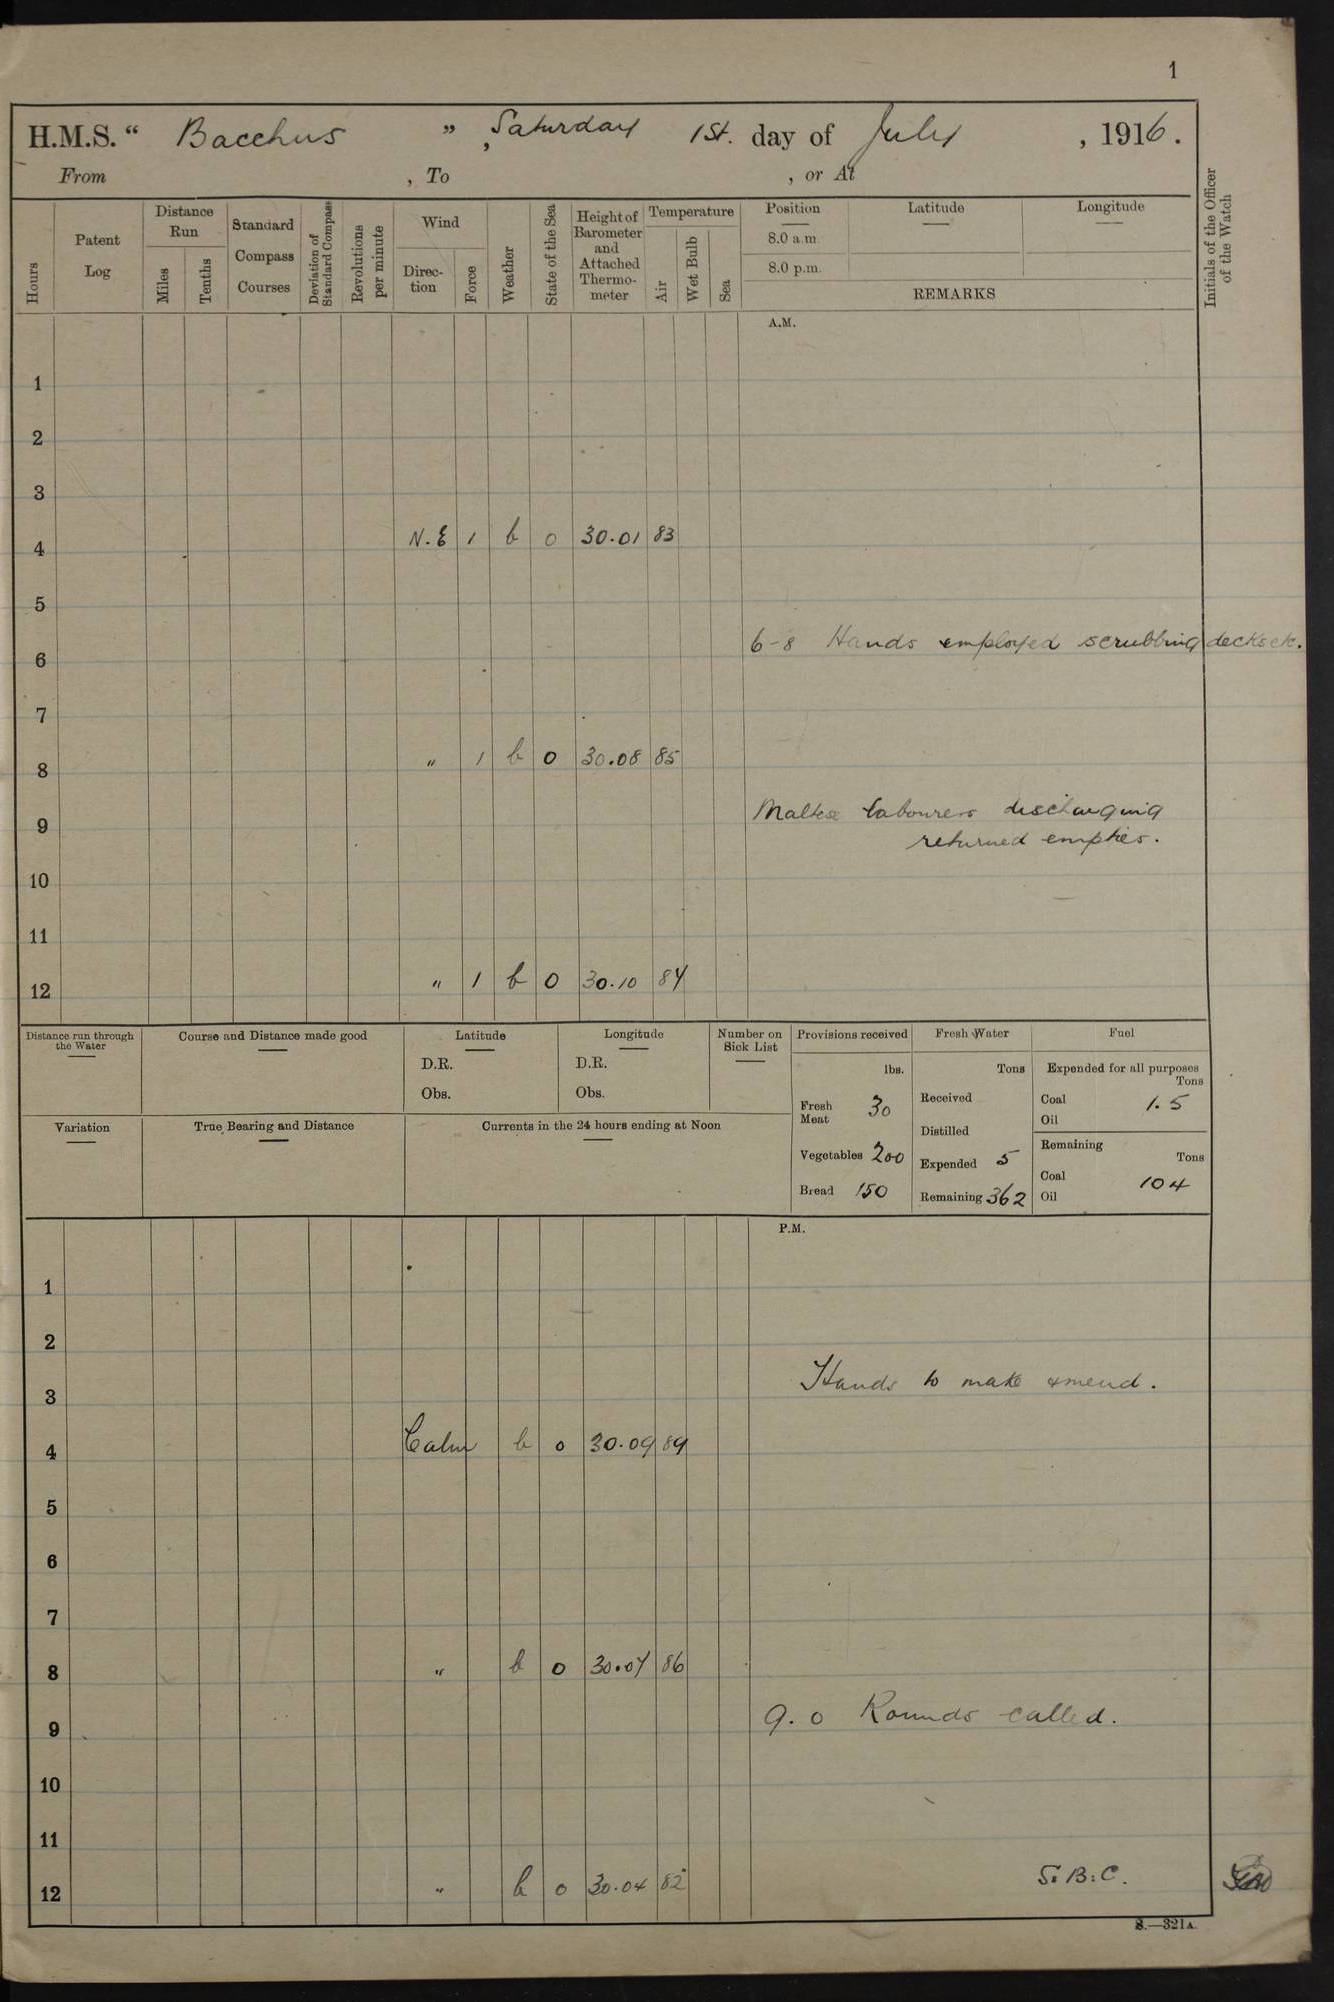 1
H.M.S. “ Bacchus ” , Saturday 1st. day of July , 1916.
From , To , or At
Hours
Patent Log
Distance Run
Miles
Tenths
Standard Compass Courses
Deviation of Standard Compass
Revolutions per minute
Wind
Direc-tion
Force
Weather
State of the Sea
Height of Barometer and Attached Thermo-meter
Temperature
Air
Wet Bulb
Sea
Position Latitude Longitude
8.0 a.m.
8.0 p.m.
REMARKS
Initials of the Officer of the Watch
A.M.
1
2
3
4 N.E 1 b 0 30.01 83
5
6-8 Hands employed scrubbing decks etc.
6
7
8 " 1 b 0 30.08 85
Maltese labourers discharging
9
returned empties.
10
11
12 " 1 b 0 30.10 84
Distance run through the Water
Course and Distance made good
Latitude
D.R.
Obs.
Longitude
D.R.
Obs.
Number on Sick List
Provisions received
lbs.
Fresh Meat 30
Vegetables 200
Bread 150
Fresh Water
Tons
Received
Distilled
Expended 5
Remaining 362
Fuel
Expended for all purposes
Tons
Coal 1.5
Oil
Remaining
Tons
Coal 104
Oil
Variation
True Bearing and Distance
Currents in the 24 hours ending at Noon
P.M.
1
2
Hands to make & mend.
3
4 Calm b 0 30.09 89
5
6
7
8 " b 0 30.07 86
9.0 Rounds called.
9
10
11
12 " b 0 30.04 82 S:B:C.
S.—321A.